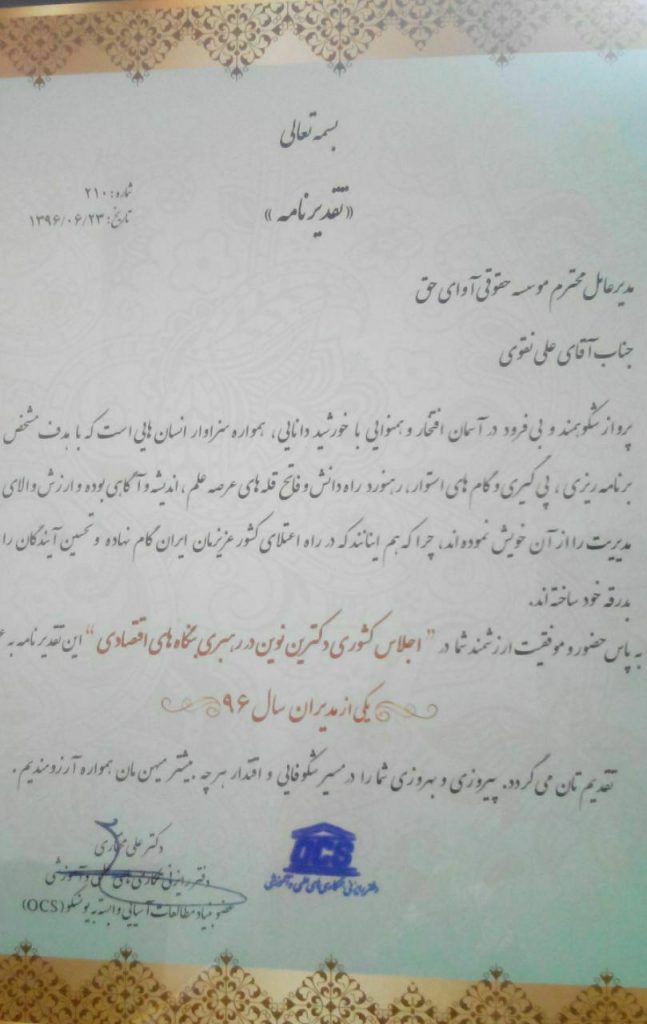 بسمه تعالی
شماره: ۲۱۰
تاریخ: ۱۳۹۶/۰۶/۲۳
«تقدیرنامه»
مدیرعامل محترم موسسه حقوقی آوای حق
جناب آقای علی نقوی
پرواز شکوهمند و بی فرود در آسمان افتخار و همنوایی با خورشید دانایی، همواره سزاوار انسان هایی است که با هدف مشخص
برنامه ریزی، پی گیری و گام های استوار، رهنورد راه دانش و فاتح قله های عرصه علم، اندیشه و آگاهی بوده و ارزش والای
مدیریت را از آن خویش نموده اند، چرا که هم اینانند که در راه اعتلای کشور عزیزمان ایران گام نهاده و تحسین آیندگان را
بدرقه خود ساخته اند.
به پاس حضور و موفقیت ارزشمند شما در "اجلاس کشوری دکترین نوین در رهبری بنگاه های اقتصادی" این تقدیرنامه به
یکی از مدیران سال ۹۶
تقدیم تان می گردد. پیروزی و بهروزی شما را در مسیر شکوفایی و اقتدار هرچه بیشتر میهن مان همواره آرزومندیم.
دکتر علی
دفتر رایزنی همکاری های علمی و آموزشی
عضو بنیاد مطالعات آسیایی وابسته به یونسکو (OCS)
OCS
دفتر رایزنی همکاری های علمی و آموزشی